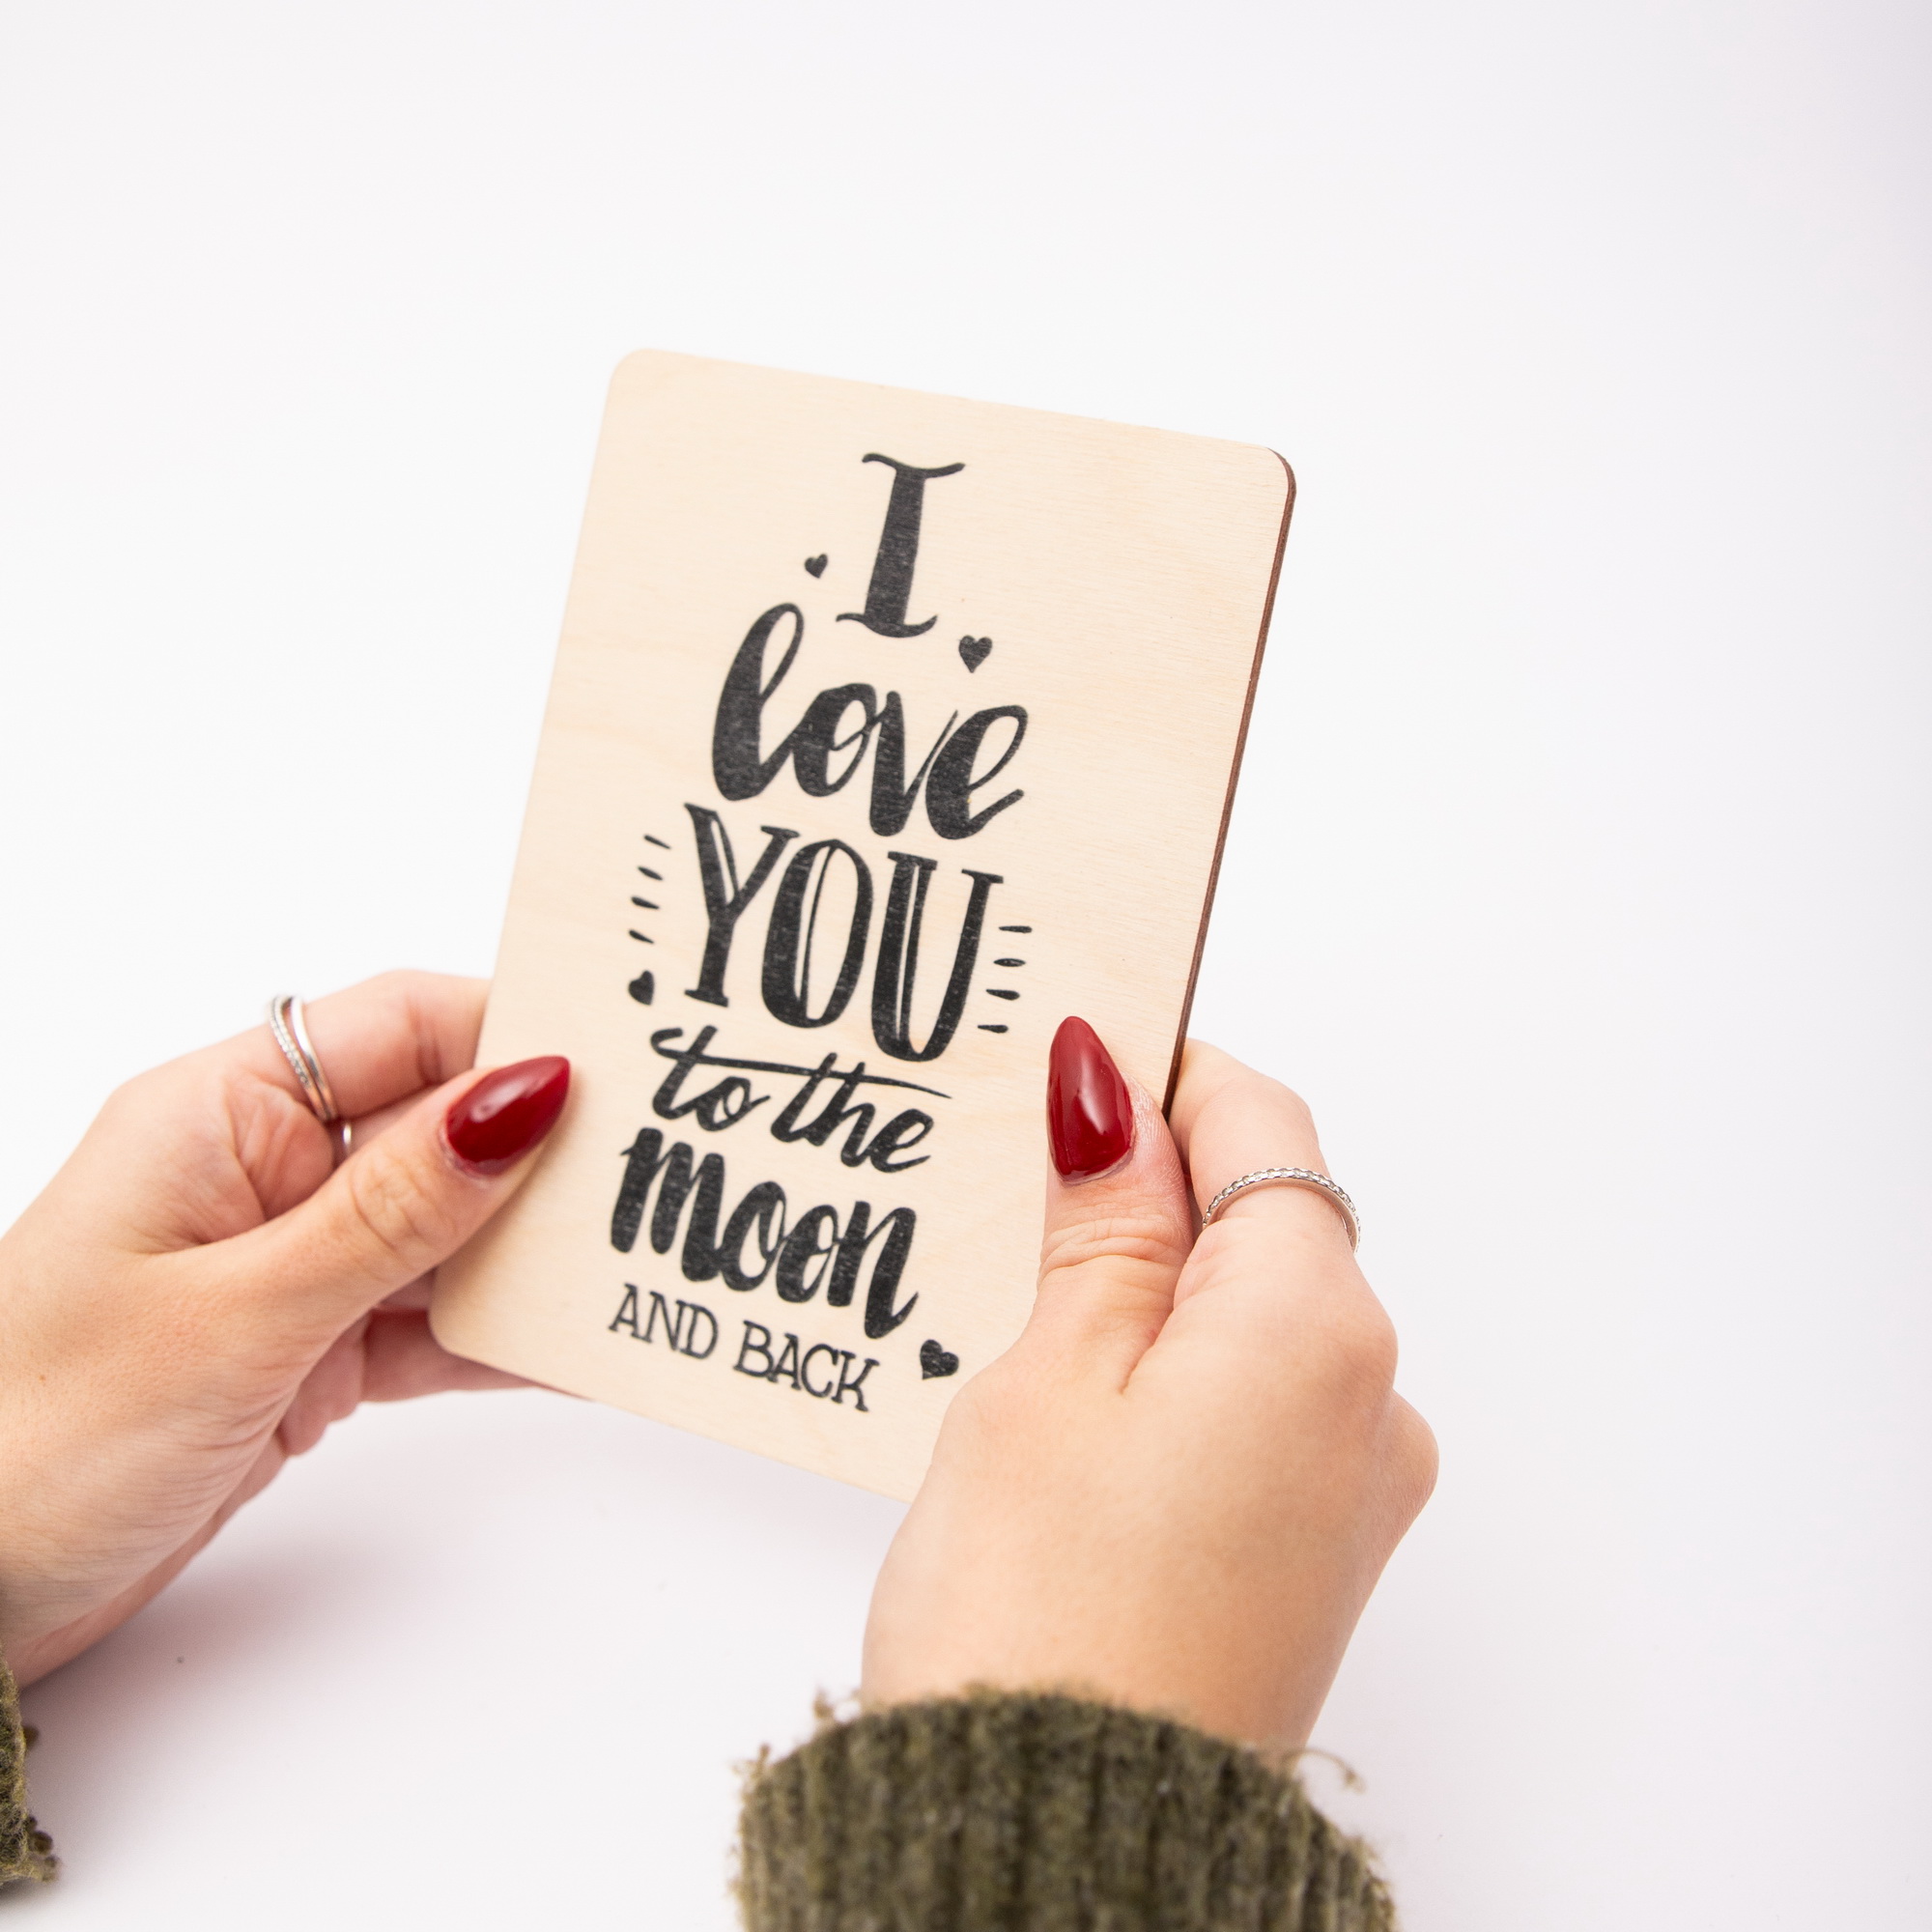 I
love
YOU
to the
moon
AND BACK